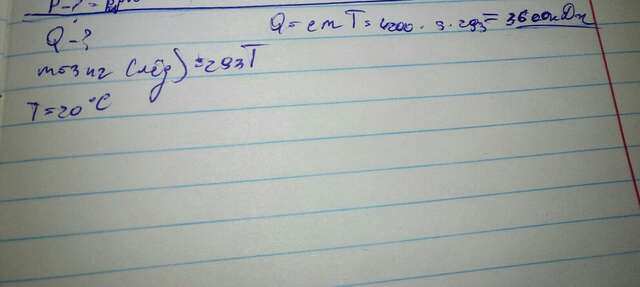 Q-? Q = cmT = 4200 · 3 · 293 = 3600кДж
m=3 кг (лёд) = 293T
T=20 °C